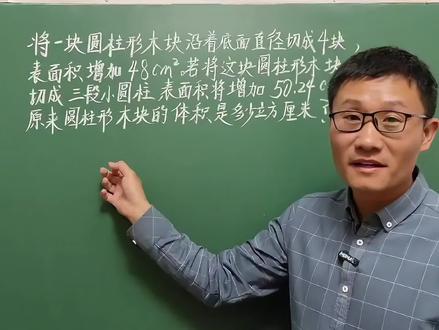 将一块圆柱形木块沿着底面直径切成4块，
表面积增加48cm²。若将这块圆柱形木块
切成三段小圆柱 表面积将增加 50.24c
原来圆柱形木块的体积是多少立方厘米？